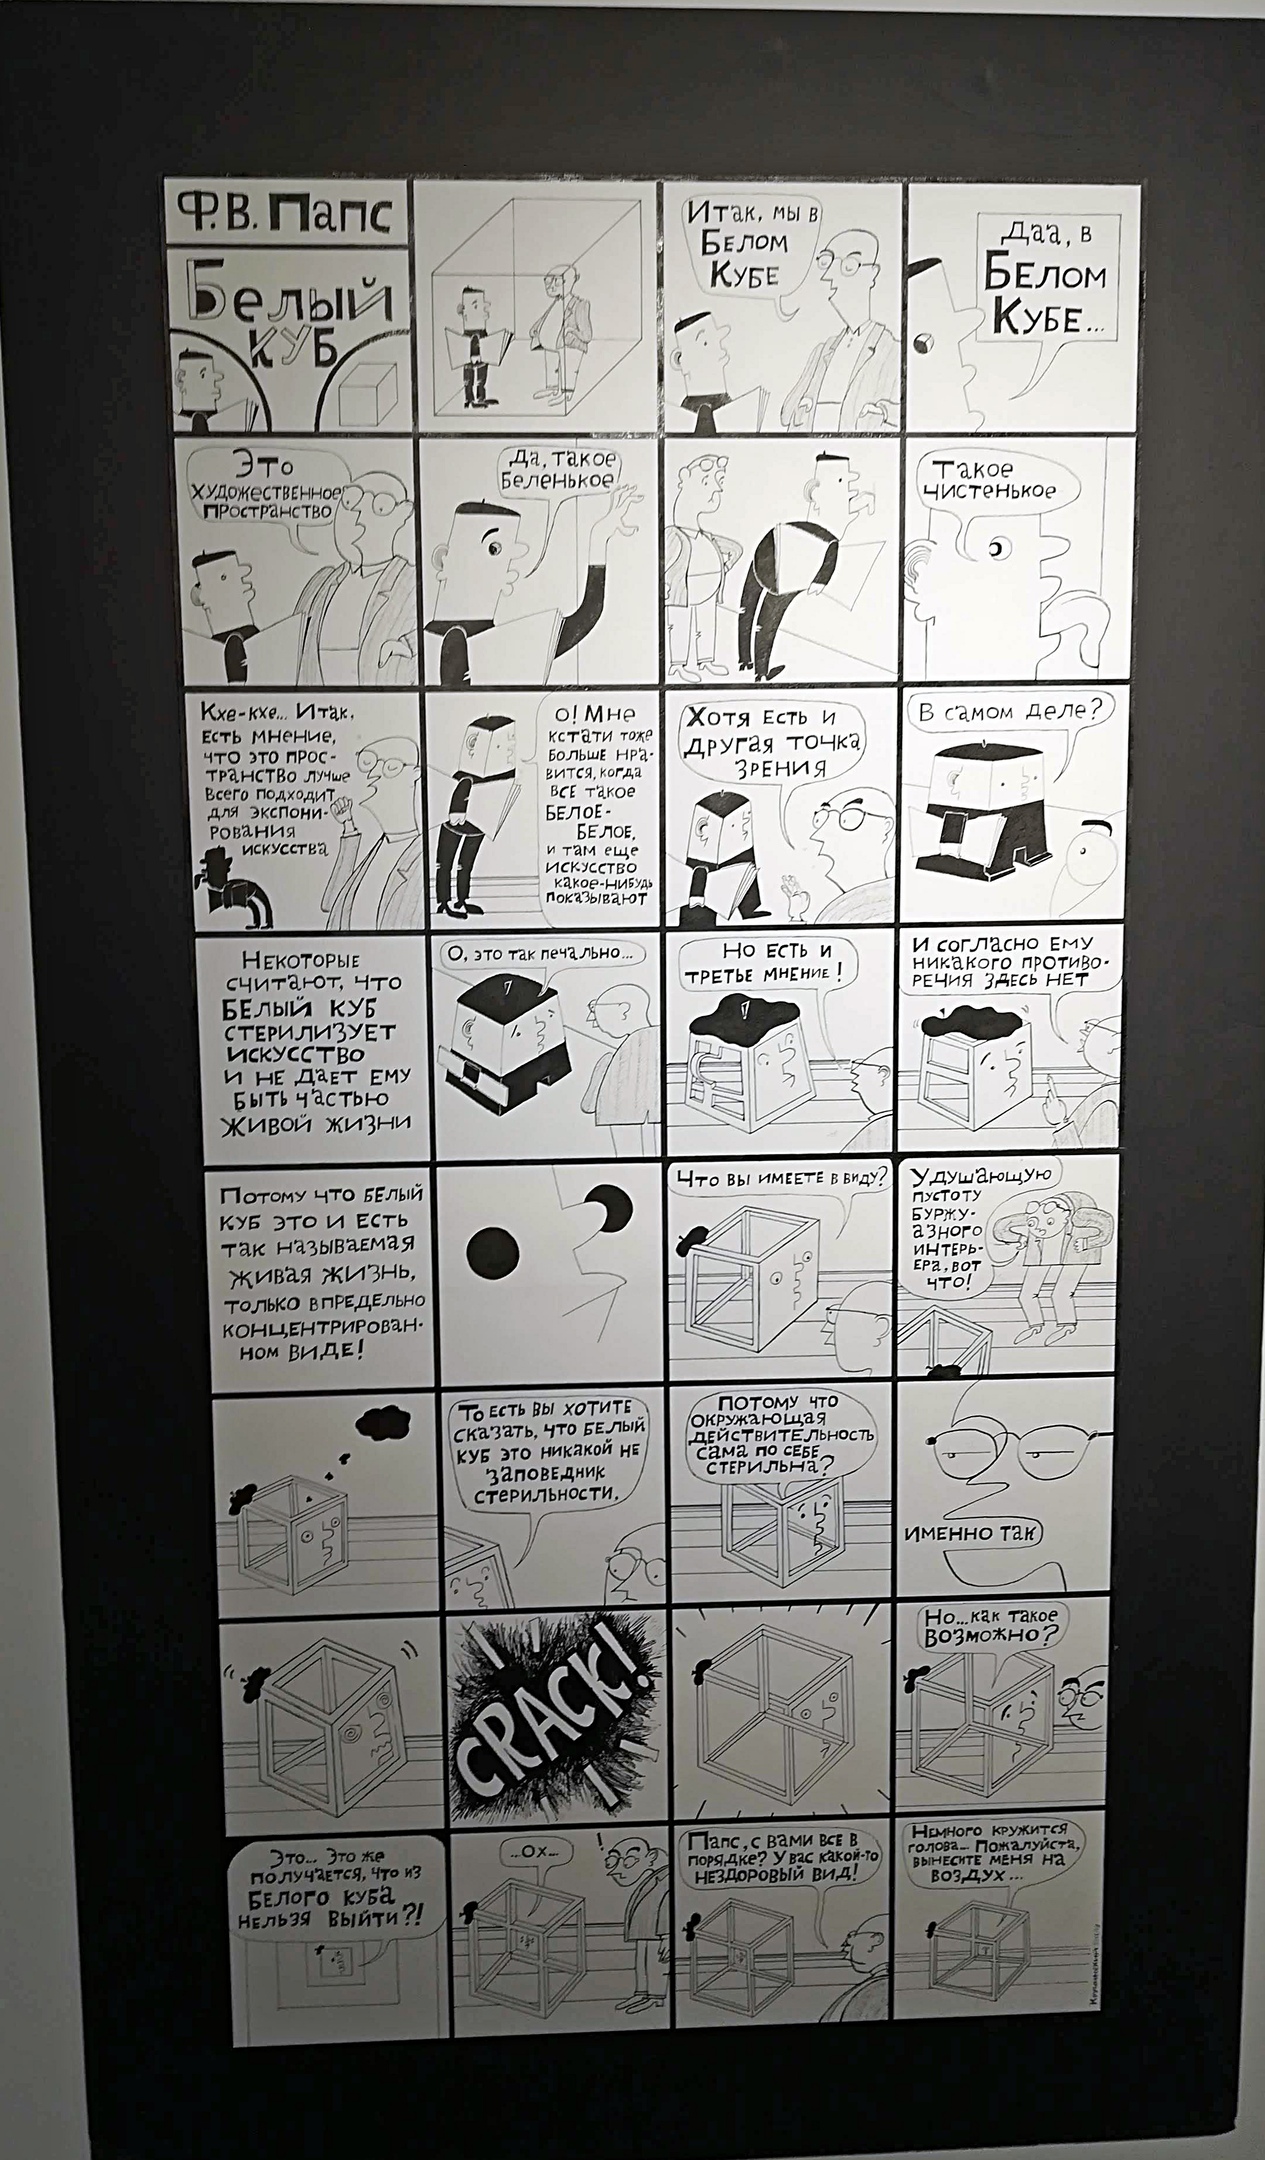 Ф.В. Папс
Белый
куб
Итак, мы в
Белом
Кубе
Даа, в
Белом
Кубе...
Это
художественное
пространство
Да, такое
беленькое
Такое
чистенькое
Кхе-кхе... Итак,
есть мнение,
что это прос-
транство лучше
всего подходит
для экспони-
рования
искусства
О! Мне
кстати тоже
больше нра-
вится, когда
все такое
белое-
белое,
и там еще
искусство
какое-нибудь
показывают
Хотя есть и
другая точка
зрения
В самом деле?
Некоторые
считают, что
белый куб
стерилизует
искусство
и не дает ему
быть частью
живой жизни
О, это так печально...
Но есть и
третье мнение!
И согласно ему
никакого противо-
речия здесь нет
Потому что белый
куб это и есть
так называемая
живая жизнь,
только в предельно
концентрирован-
ном виде!
Что вы имеете в виду?
Удушающую
пустоту
буржу-
азного
интерь-
ера, вот
что!
То есть вы хотите
сказать, что белый
куб это никакой не
заповедник
стерильности,
Потому что
окружающая
действительность
сама по себе
стерильна?
Именно так
CRACK!
Но...как такое
возможно?
Это... Это же
получается, что из
белого куба
нельзя выйти?!
...ох...
!
Папс, с вами все в
порядке? У вас какой-то
нездоровый вид!
Немного кружится
голова... Пожалуйста,
вынесите меня на
воздух...